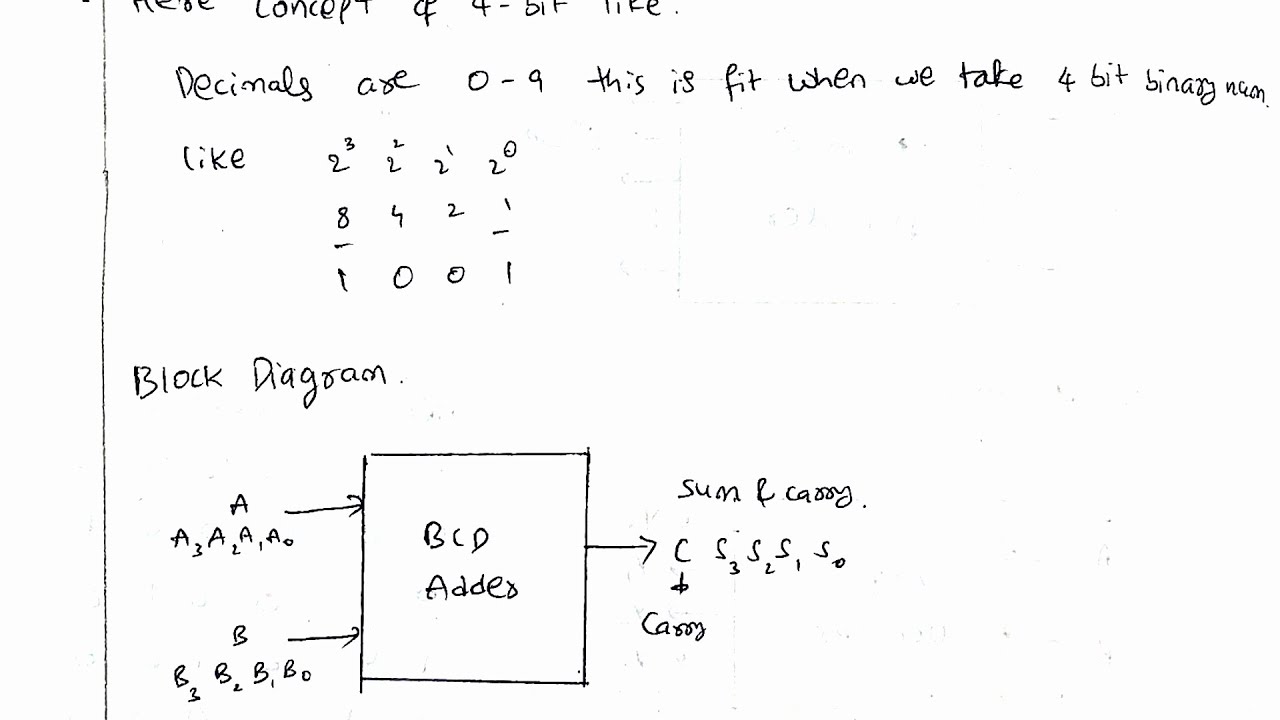 Here concept of 4-bit like.
Decimals are 0-9 this is fit when we take 4 bit binary num.
like 2³ 2² 2¹ 2⁰
8 4 2 1
1 0 0 1
Block Diagram.
A
A₃A₂A₁A₀
BCD
Adder
Sum & carry.
C S₃S₂S₁S₀
Carry
B
B₃B₂B₁B₀